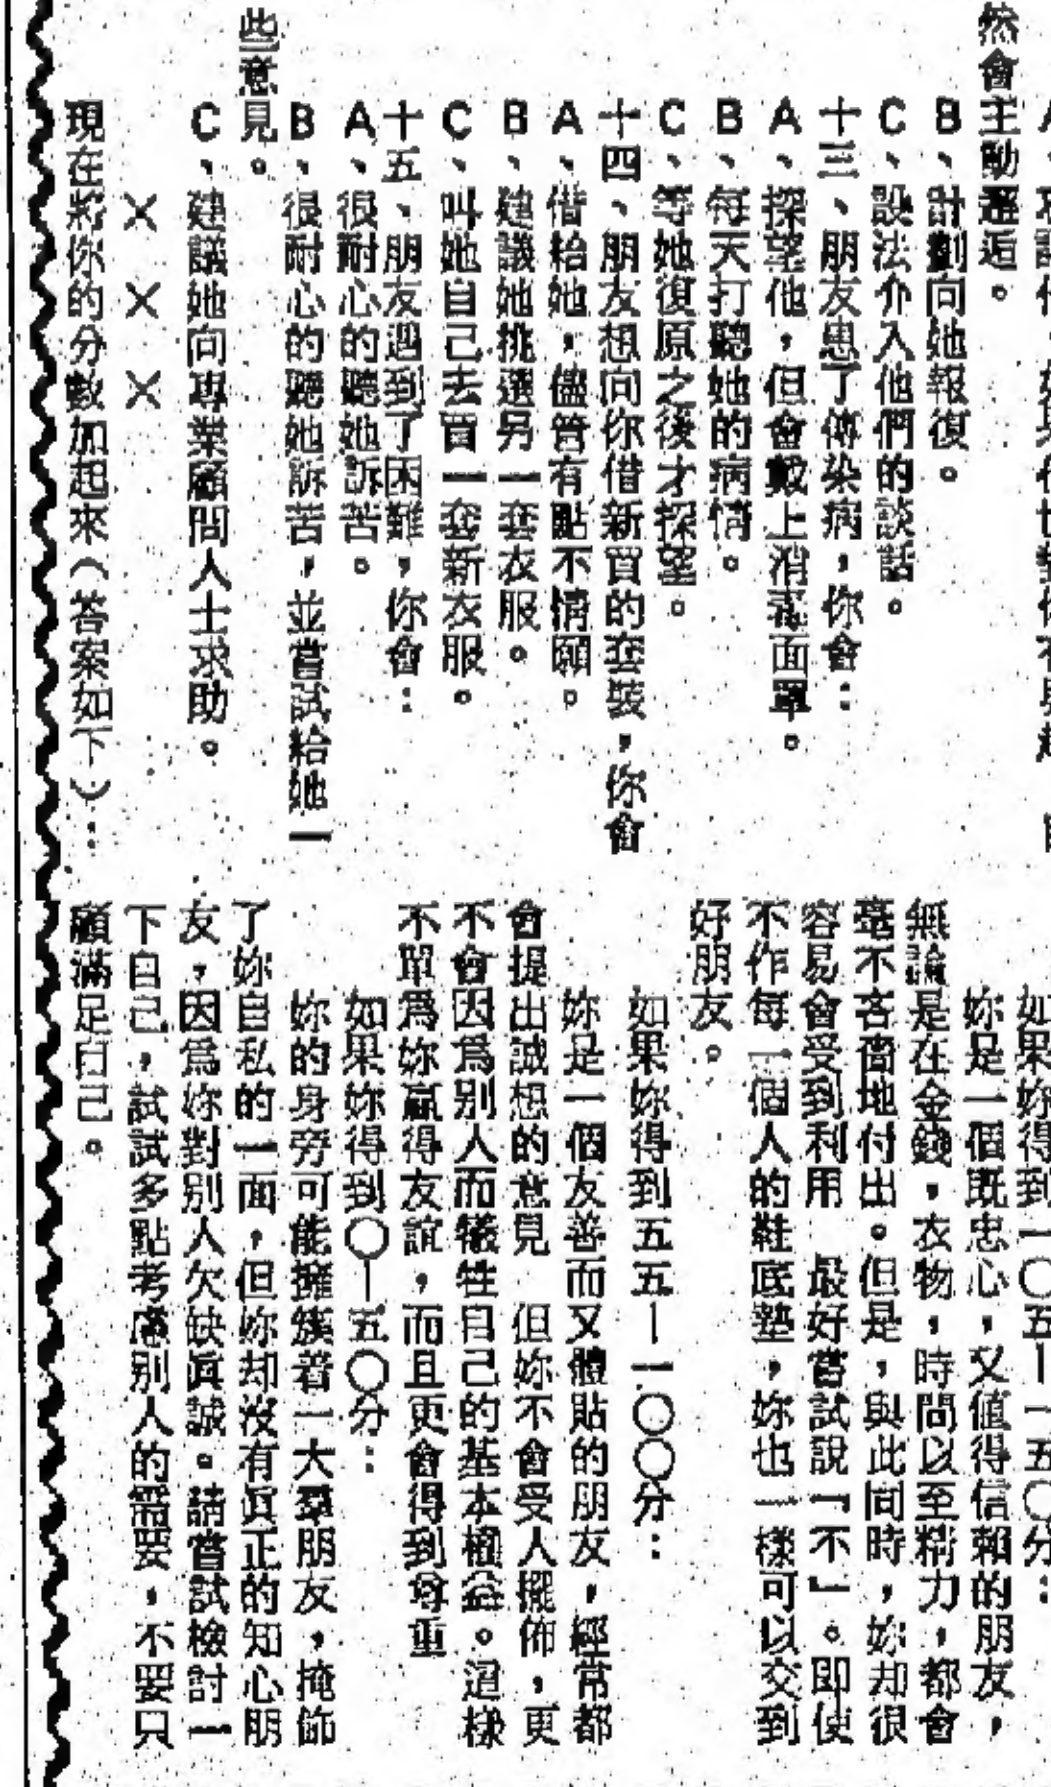 然會主動邂逅。
B、計劃向她報復。
C、設法介入他們的談話。
十三、朋友患了傳染病，你會：
A、探望他，但會戴上消毒面罩。
B、每天打聽她的病情。
C、等她復原之後才探望。
十四、朋友想向你借新買的套裝，你會
A、借給她，儘管有點不情願。
B、建議她挑選另一套衣服。
C、叫她自己去買一套新衣服。
十五、朋友遇到了困難，你會：
A、很耐心的聽她訴苦。
B、很耐心的聽她訴苦，並嘗試給她一
些意見。
C、建議她向專業顧問人士求助。
×××
現在將你的分數加起來（答案如下）：
如果妳得到一〇五—一五〇分：
妳是一個既忠心，又值得信賴的朋友，
無論是在金錢，衣物，時間以至精力，都會
毫不吝嗇地付出。但是，與此同時，妳却很
容易會受到利用　最好嘗試說「不」。即使
不作每一個人的鞋底墊，妳也一樣可以交到
好朋友。
如果妳得到五五—一〇〇分：
妳是一個友善而又體貼的朋友，經常都
會提出誠想的意見　但妳不會受人擺佈，更
不會因爲別人而犧牲自己的基本權益。這樣
不單爲妳贏得友誼，而且更會得到尊重
如果妳得到〇—五〇分：
妳的身旁可能擁簇着一大羣朋友，掩飾
了妳自私的一面，但妳却沒有眞正的知心朋
友，因爲妳對別人欠缺眞誠。請嘗試檢討一
下自己，試試多點考慮別人的需要，不要只
顧滿足自己。